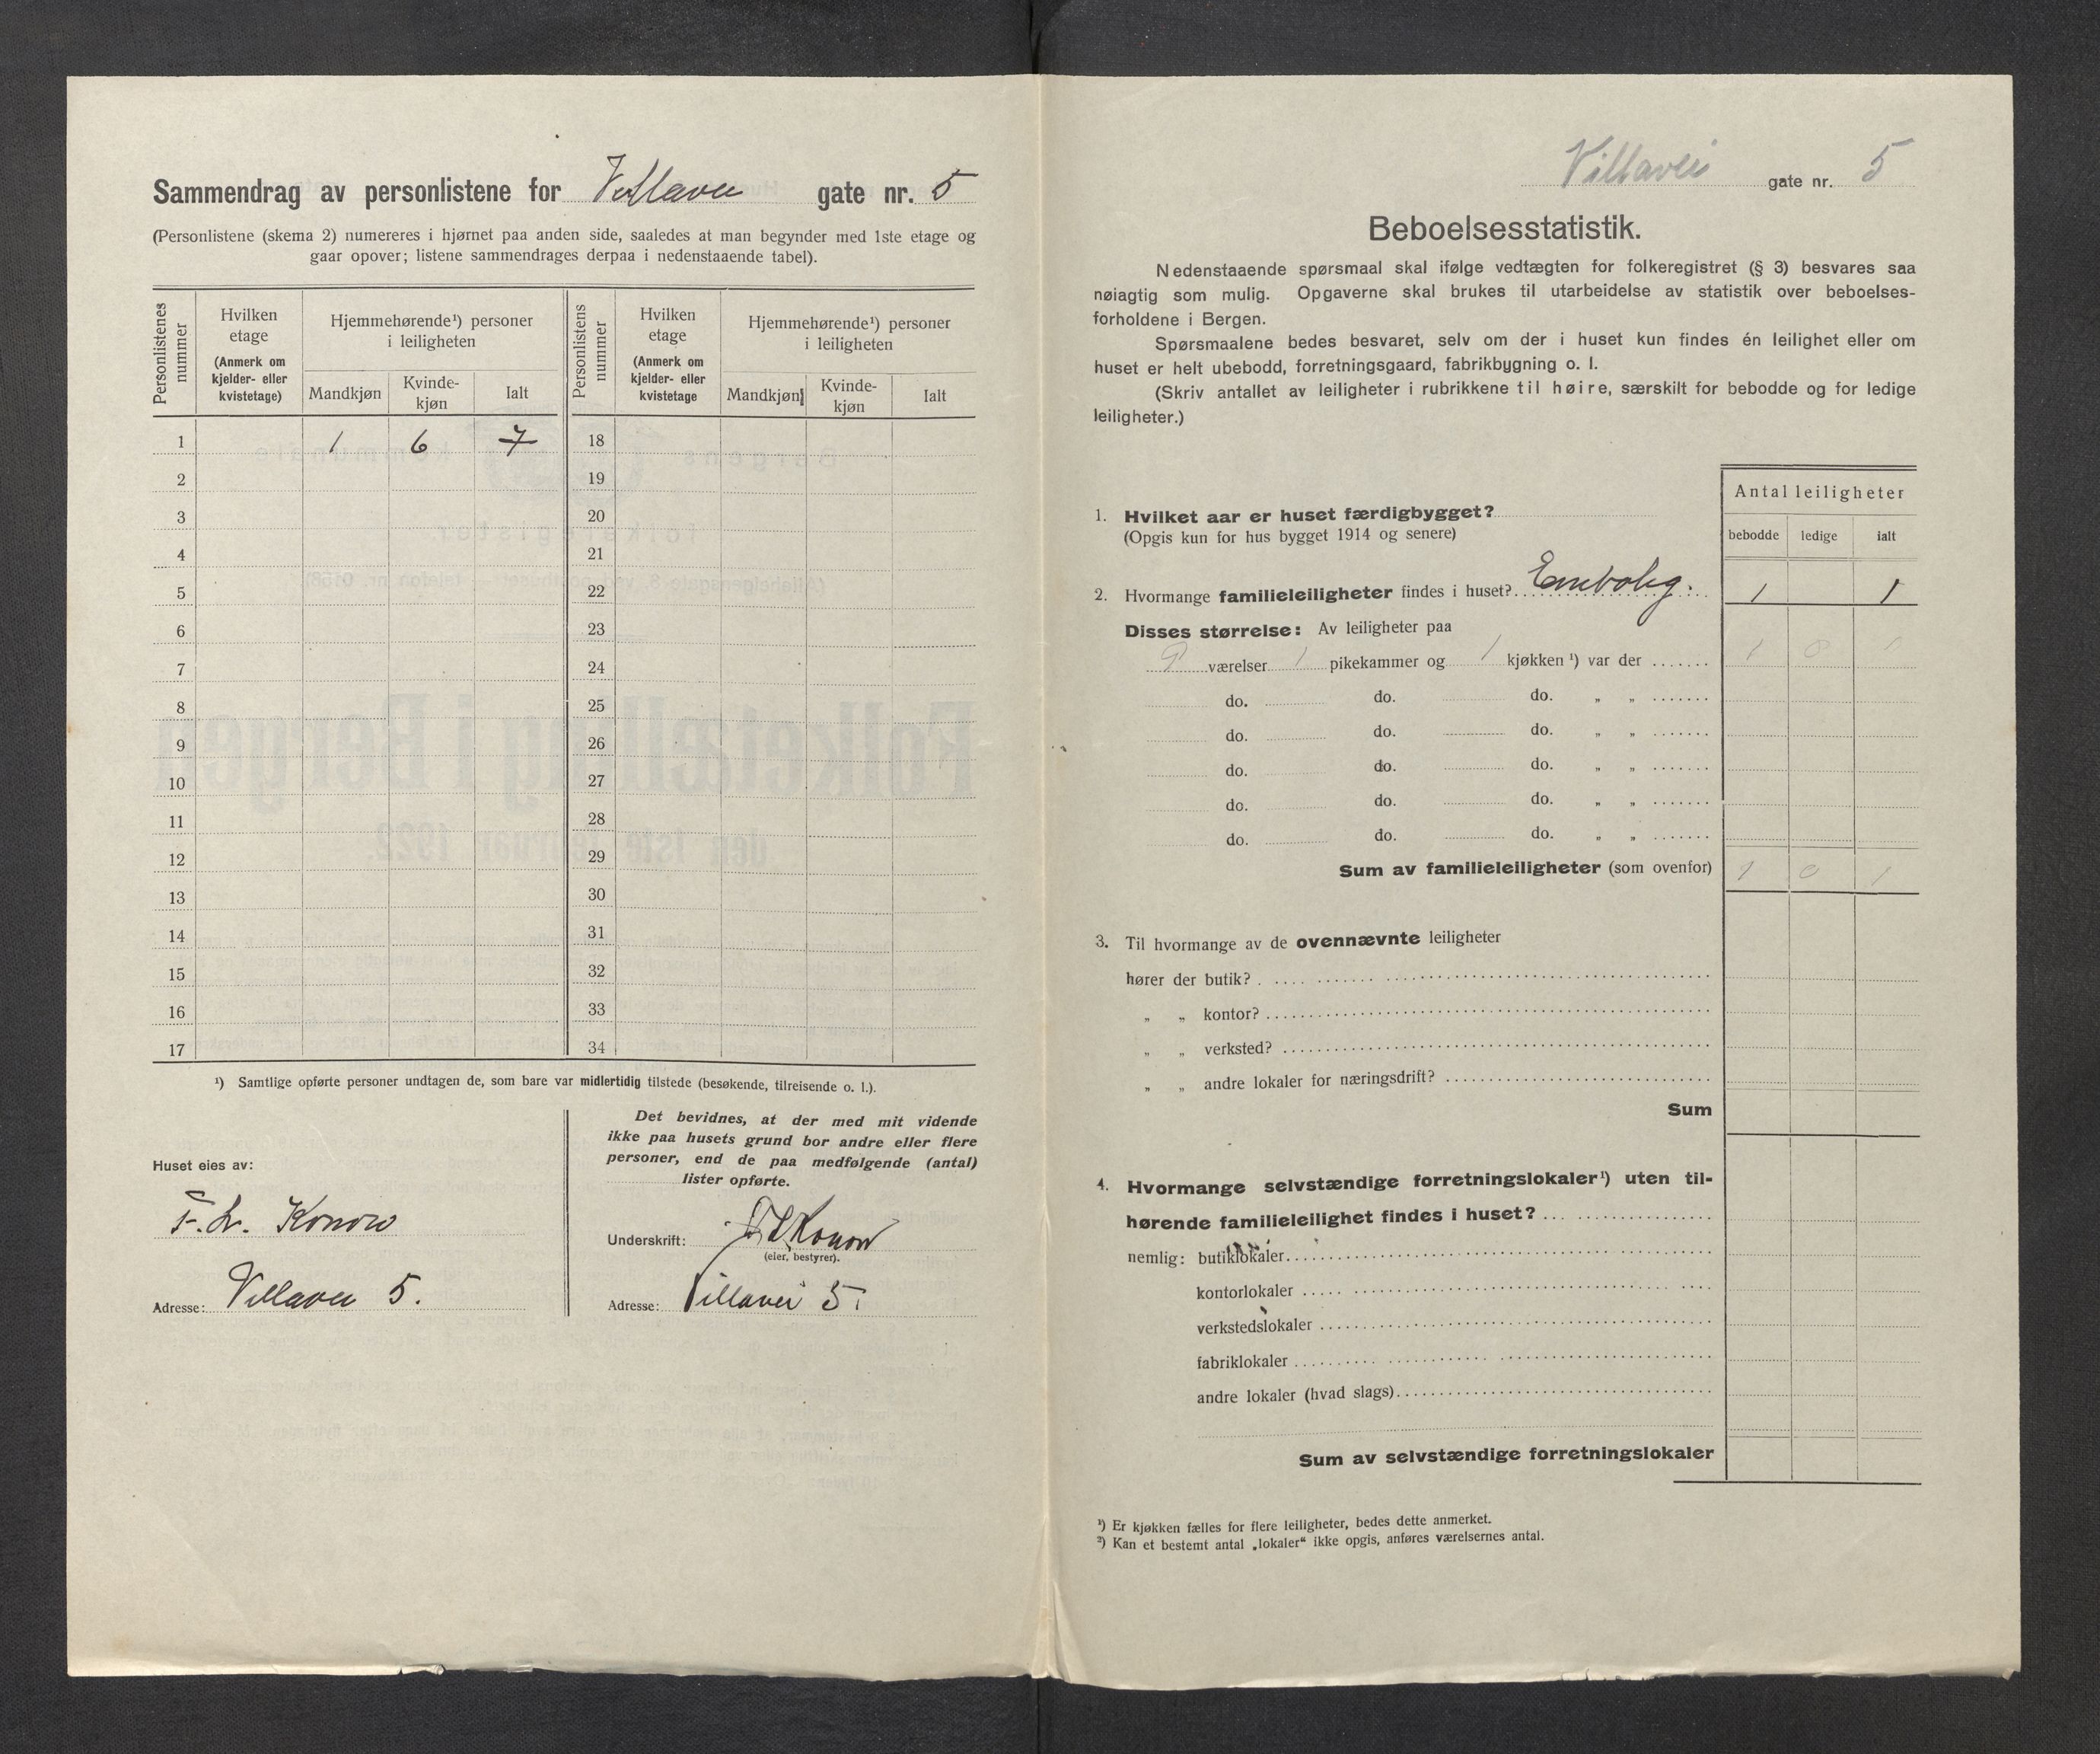 Sammendrag av personlistene for Villavei gate nr. 5
(Personlistene (skema 2) numereres i hjørnet paa anden side, saaledes at man begynder med 1ste etage og
gaar opover; listene sammendrages derpaa i nedenstaaende tabel).
Personlistenes nummer
Hvilken etage
(Anmerk om kjelder- eller kvistetage)
Hjemmehørende¹) personer i leiligheten
Mandkjøn
Kvinde-kjøn
Ialt
Personlistens nummer
Hvilken etage
(Anmerk om kjelder- eller kvistetage
Hjemmehørende¹) personer i leiligheten
Mandkjøn
Kvinde-kjøn
Ialt
1 1 6 7 18
2 19
3 20
4 21
5 22
6 23
7 24
8 25
9 26
10 27
11 28
12 29
13 30
14 31
15 32
16 33
17 34
¹) Samtlige opførte personer undtagen de, som bare var midlertidig tilstede (besøkende, tilreisende o. l.).
Huset eies av:
F. L. Konow
Adresse: Villavei 5.
Det bevidnes, at der med mit vidende
ikke paa husets grund bor andre eller flere
personer, end de paa medfølgende (antal)
lister opførte.
Underskrift: F L Konow
(eier, bestyrer).
Adresse: Villavei 5.
Villavei gate nr. 5
Beboelsesstatistik.
Nedenstaaende spørsmaal skal ifølge vedtægten for folkeregistret (§ 3) besvares saa
nøiagtig som mulig. Opgaverne skal brukes til utarbeidelse av statistik over beboelses-
forholdene i Bergen.
Spørsmaalene bedes besvaret, selv om der i huset kun findes én leilighet eller om
huset er helt ubebodd, forretningsgaard, fabrikbygning o. l.
(Skriv antallet av leiligheter i rubrikkene til høire, særskilt for bebodde og for ledige
leiligheter.)
Antal leiligheter
bebodde ledige ialt
1. Hvilket aar er huset færdigbygget?
(Opgis kun for hus bygget 1914 og senere)
2. Hvormange familieleiligheter findes i huset? Enebolig. 1 1
Disses størrelse: Av leiligheter paa
9 værelser 1 pikekammer og 1 kjøkken ¹) var der 1 0 1
do. do. do. „ „
do. do. do. „ „
do. do. do. „ „
do. do. do. „ „
do. do. do. „ „
Sum av familieleiligheter (som ovenfor) 1 0 1
3. Til hvormange av de ovennævnte leiligheter
hører der butik?
„ „ kontor?
„ „ verksted?
„ „ andre lokaler for næringsdrift?
Sum
4. Hvormange selvstændige forretningslokaler¹) uten til-
hørende familieleilighet findes i huset?
nemlig: butiklokaler
kontorlokaler
verkstedslokaler
fabriklokaler
andre lokaler (hvad slags)
Sum av selvstændige forretningslokaler
¹) Er kjøkken fælles for flere leiligheter, bedes dette anmerket.
²) Kan et bestemt antal „lokaler“ ikke opgis, anføres værelsernes antal.